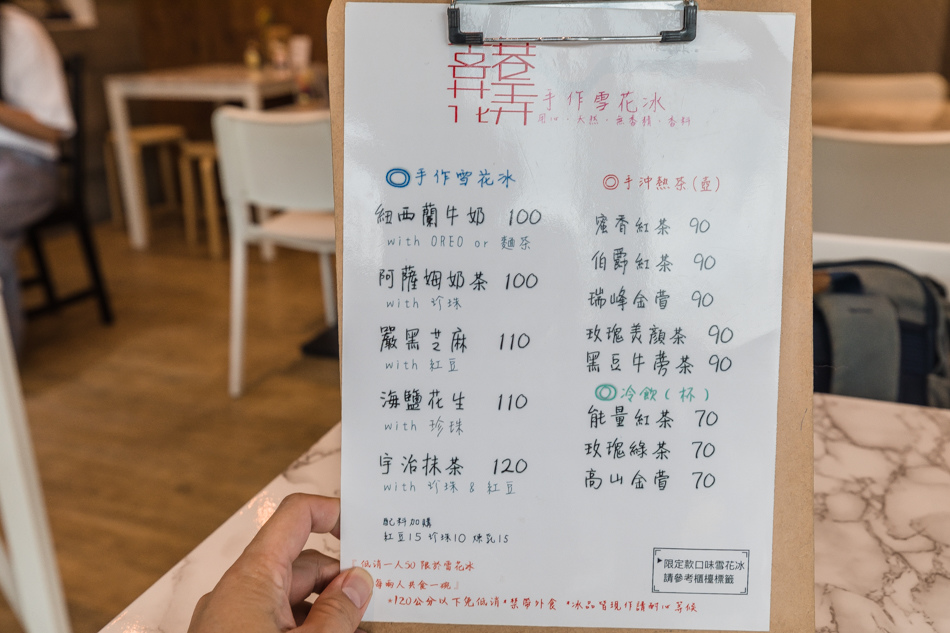 手作雪花冰
用心．天然．無香精．香料
手作雪花冰
紐西蘭牛奶 100
with OREO or 麵茶
阿薩姆奶茶 100
with 珍珠
嚴黑芝麻 110
with 紅豆
海鹽花生 110
with 珍珠
宇治抹茶 120
with 珍珠 & 紅豆
配料加購
紅豆15 珍珠10 煉乳15
手沖熱茶(壺)
蜜香紅茶 90
伯爵紅茶 90
瑞峰金萱 90
玫瑰美顏茶 90
黑豆牛蒡茶 90
冷飲(杯)
能量紅茶 70
玫瑰綠茶 70
高山金萱 70
限定款口味雪花冰
請參考櫃檯標籤
低消一人50 限於雪花冰
每兩人共食一碗』
*120公分以下免低消 *禁帶外食 *冰品皆現作請耐心等候